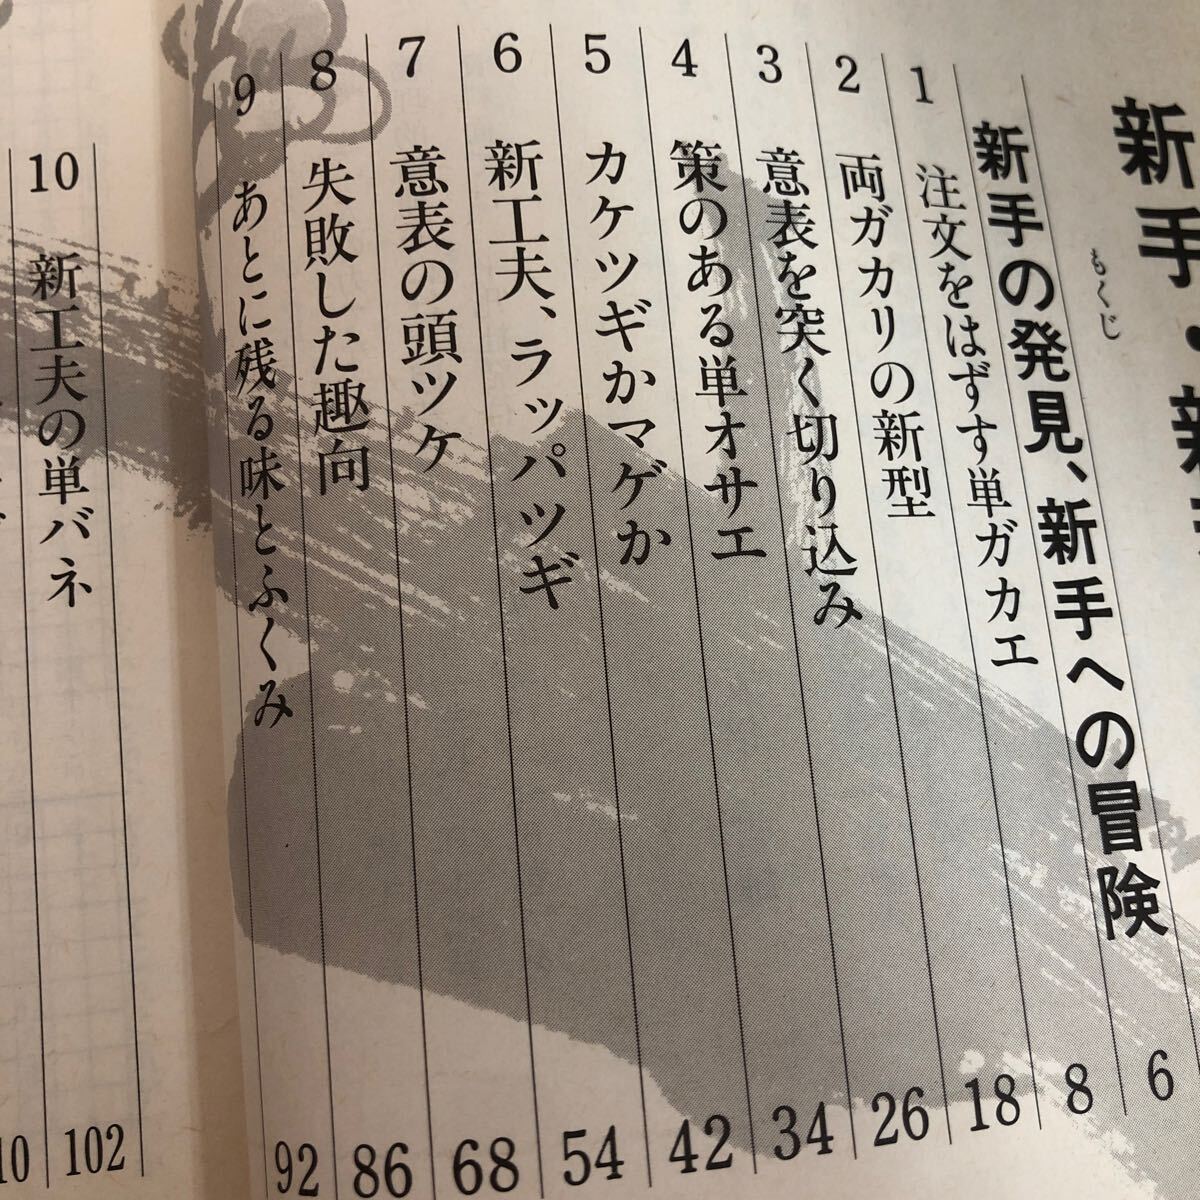 新手・新
もくじ
新手の発見、新手への冒険 6
1 注文をはずす単ガカエ 8
2 両ガカリの新型 18
3 意表を突く切り込み 26
4 策のある単オサエ 34
5 カケツギかマゲか 42
6 新工夫、ラッパツギ 54
7 意表の頭ツケ 68
8 失敗した趣向 86
9 あとに残る味とふくみ 92
10 新工夫の単バネ 102
10